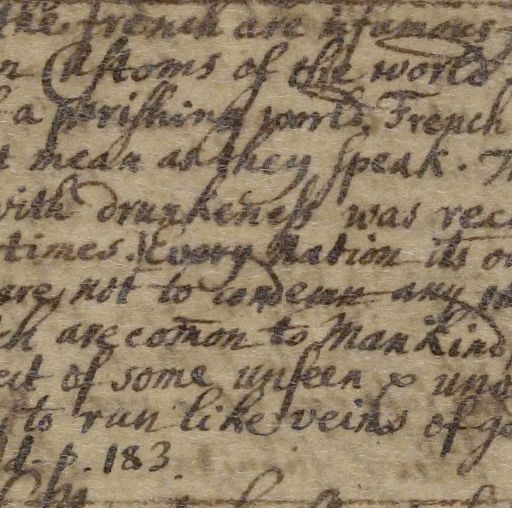 the french are infamous
n Customs of the world
f a perishing world, French
t mean as they speak. Th
with drunkeness was rec
times. Every Nation its o
are not to condemn any
ch are com̄on to Mankind
eit of some unseen & un
to run like veins of go
ld. p. 183